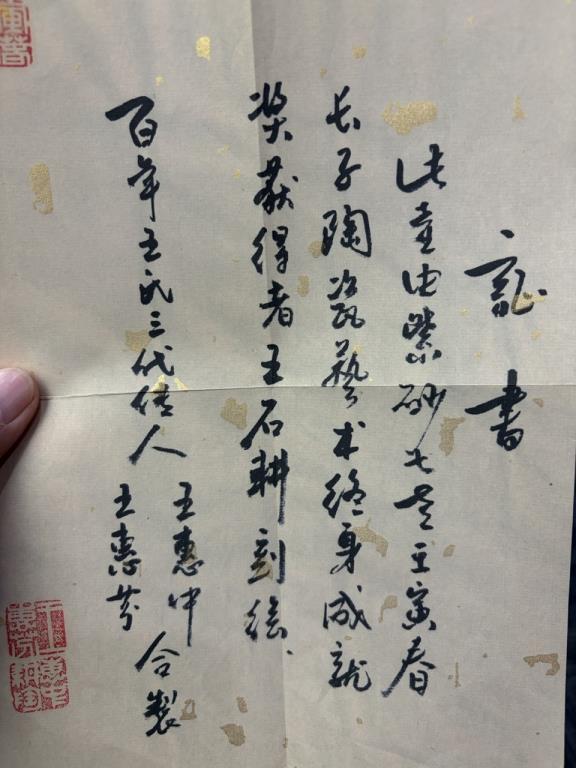 証書
此壶由紫砂七老王寅春
长子陶瓷藝术终身成就
奖获得者王石耕刻绘
百年王氏三代传人
王惠中
王惠芬
合製